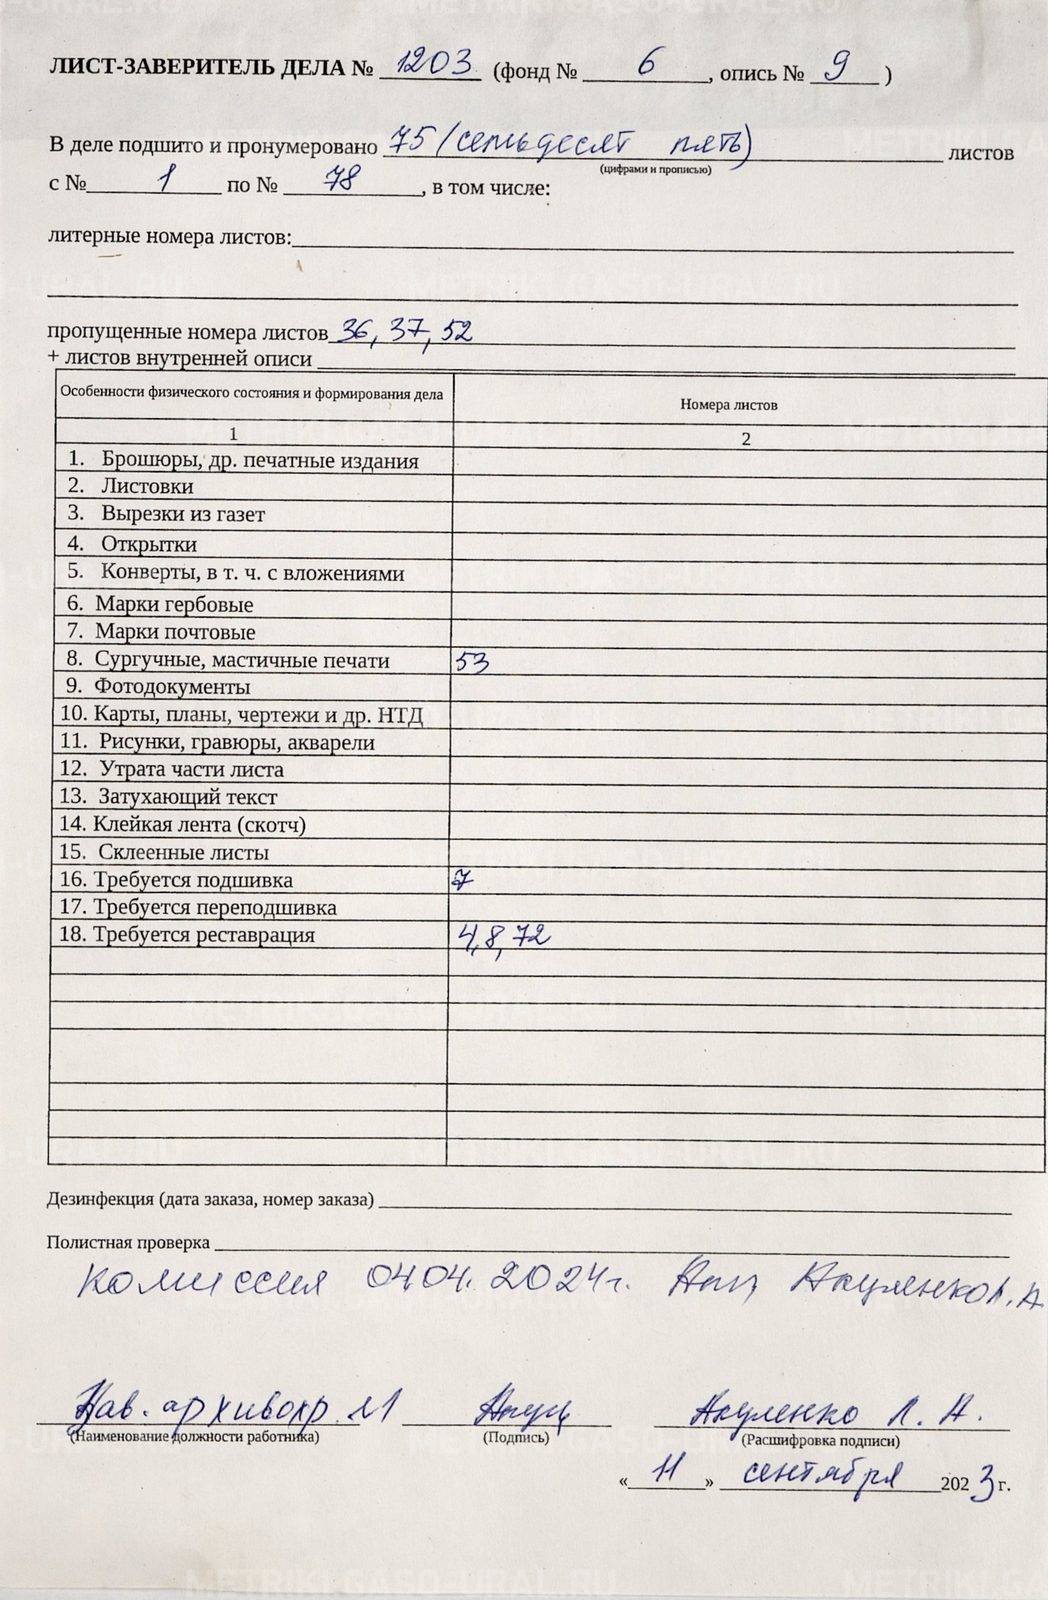 ЛИСТ-ЗАВЕРИТЕЛЬ ДЕЛА № 1203 (фонд № 6, опись № 9)
В деле подшито и пронумеровано 75 (семьдесят пять) листов
(цифрами и прописью)
с № 1 по № 78, в том числе:
литерные номера листов:
пропущенные номера листов 36, 37, 52
+ листов внутренней описи
Особенности физического состояния и формирования дела Номера листов
1 2
1. Брошюры, др. печатные издания
2. Листовки
3. Вырезки из газет
4. Открытки
5. Конверты, в т. ч. с вложениями
6. Марки гербовые
7. Марки почтовые
8. Сургучные, мастичные печати 53
9. Фотодокументы
10. Карты, планы, чертежи и др. НТД
11. Рисунки, гравюры, акварели
12. Утрата части листа
13. Затухающий текст
14. Клейкая лента (скотч)
15. Склеенные листы
16. Требуется подшивка 7
17. Требуется переподшивка
18. Требуется реставрация 4, 8, 72
Дезинфекция (дата заказа, номер заказа)
Полистная проверка
комиссия 04.04. 2024г. Акуленко Л. А
Зав. архивохр. №1 Акуленко Л. А.
(Наименование должности работника) (Подпись) (Расшифровка подписи)
« 11 » сентября 2023 г.
METRIKI.GASO-URAL.RU